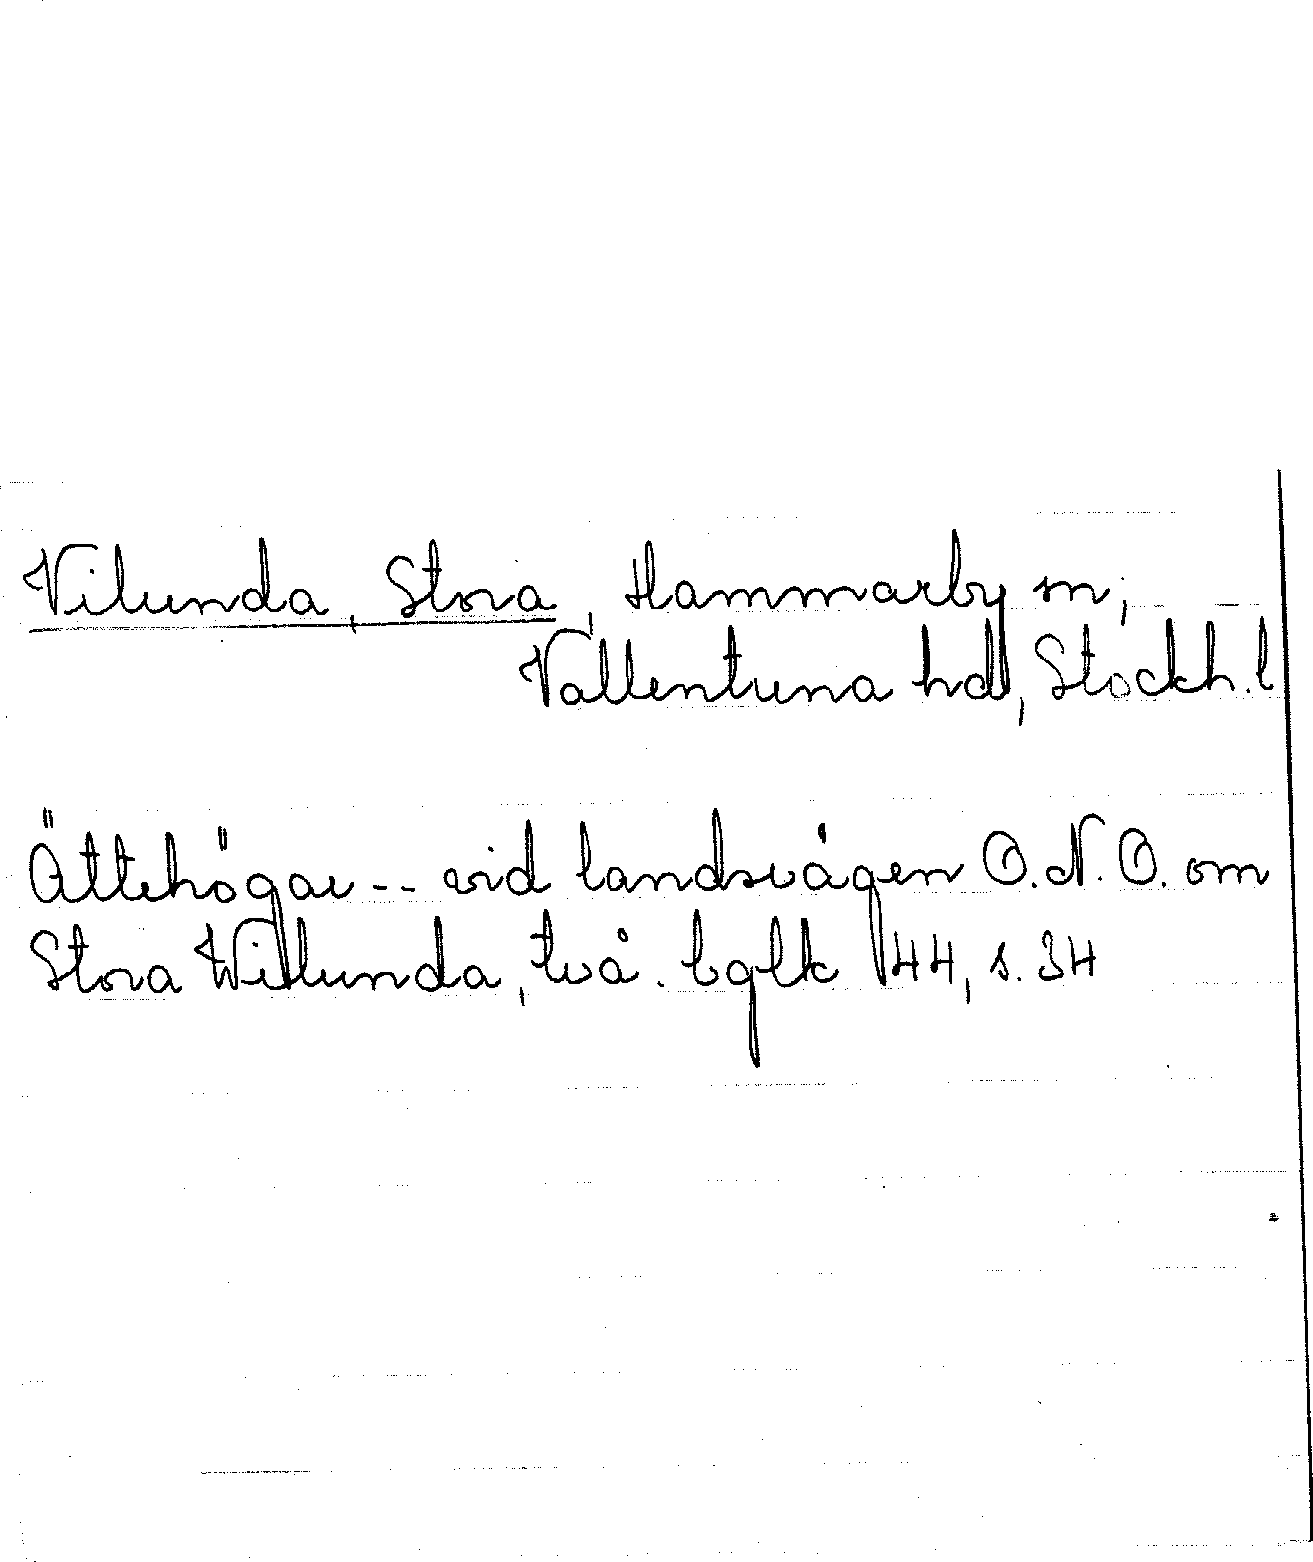 Vilunda, Stora, Hammarby sn,
Vallentuna hd, Stockh. l
Ättehögar -- vid landsvägen O.N.O. om
Stora Wilunda, två. bglk 144, s. 34